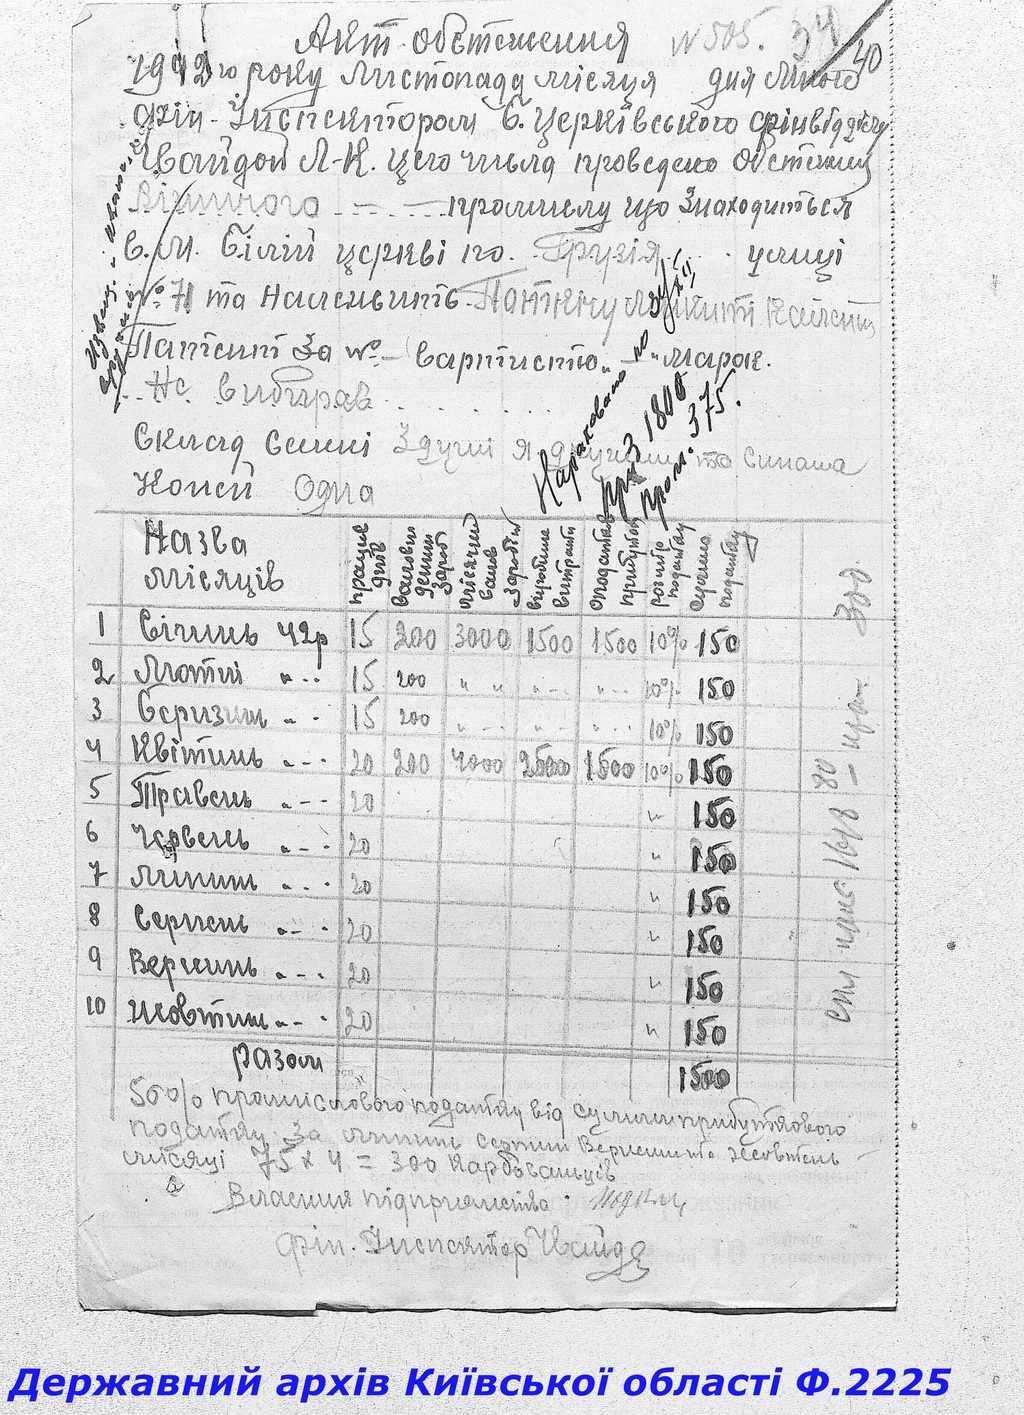 Акт обстеження № 505. 34 40
1942го року Листопаду місяця дня
Фін-Інспектором Б. Церківського фінвідділу
Л-К. цього числа проведено обстежин
Візничого промислу що знаходиться
в.м. Білій церкві по. Грузія улиці
№ 71 та належить
Патент за № — вартистю „ — " марок.
Не вибірав
Склад семиі 3 душі я дружина та синаша
Коней Одна
Нараховано по
при 3 1800
пром. 375.
Назва місяців праців днів валовий деннй зароб місячний валов заробіт витрати Оподатков прибуток розмір податку сумма податку
1 Січинь 42р 15 200 3000 1500 1500 10% 150
2 Лютий " - - 15 200 " " " - - " - - 10% 150
3 Беризинь " - - 15 200 " - - " - - " - - 10% 150
4 Квітинь " - - 20 200 4000 2500 1500 10% 150
5 Травень " - - 20 " 150
6 Червень " - - 20 " 150
7 Липинь " - - 20 " 150
8 Серпень " - - 20 " 150
9 Вересинь " - - 20 " 150
10 Жовтинь " - - 20 " 150
Разом 1500
50% промислового податку від сумми прибуткового
податку за липинь серпинь Вересинь та жовтень
місяці 75 x 4 = 300 карбованців
Власник підприємства
Фін. Інспектор
Державний архів Київської області Ф.2225